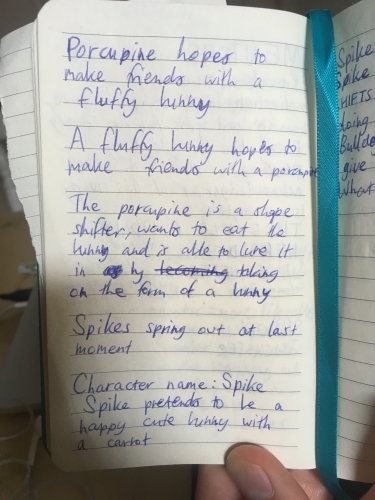 Porcupine hopes to
make friends with a
fluffy bunny
A fluffy bunny hopes to
make friends with a porcupine
The porcupine is a shape
shifter, wants to eat the
bunny and is able to lure it
in by becoming taking
on the form of a bunny
Spikes spring out at last
moment
Character name: Spike
Spike pretends to be a
happy cute bunny with
a carrot
Spike
Spike
SHIFTS
doing
Bulldo
give
what